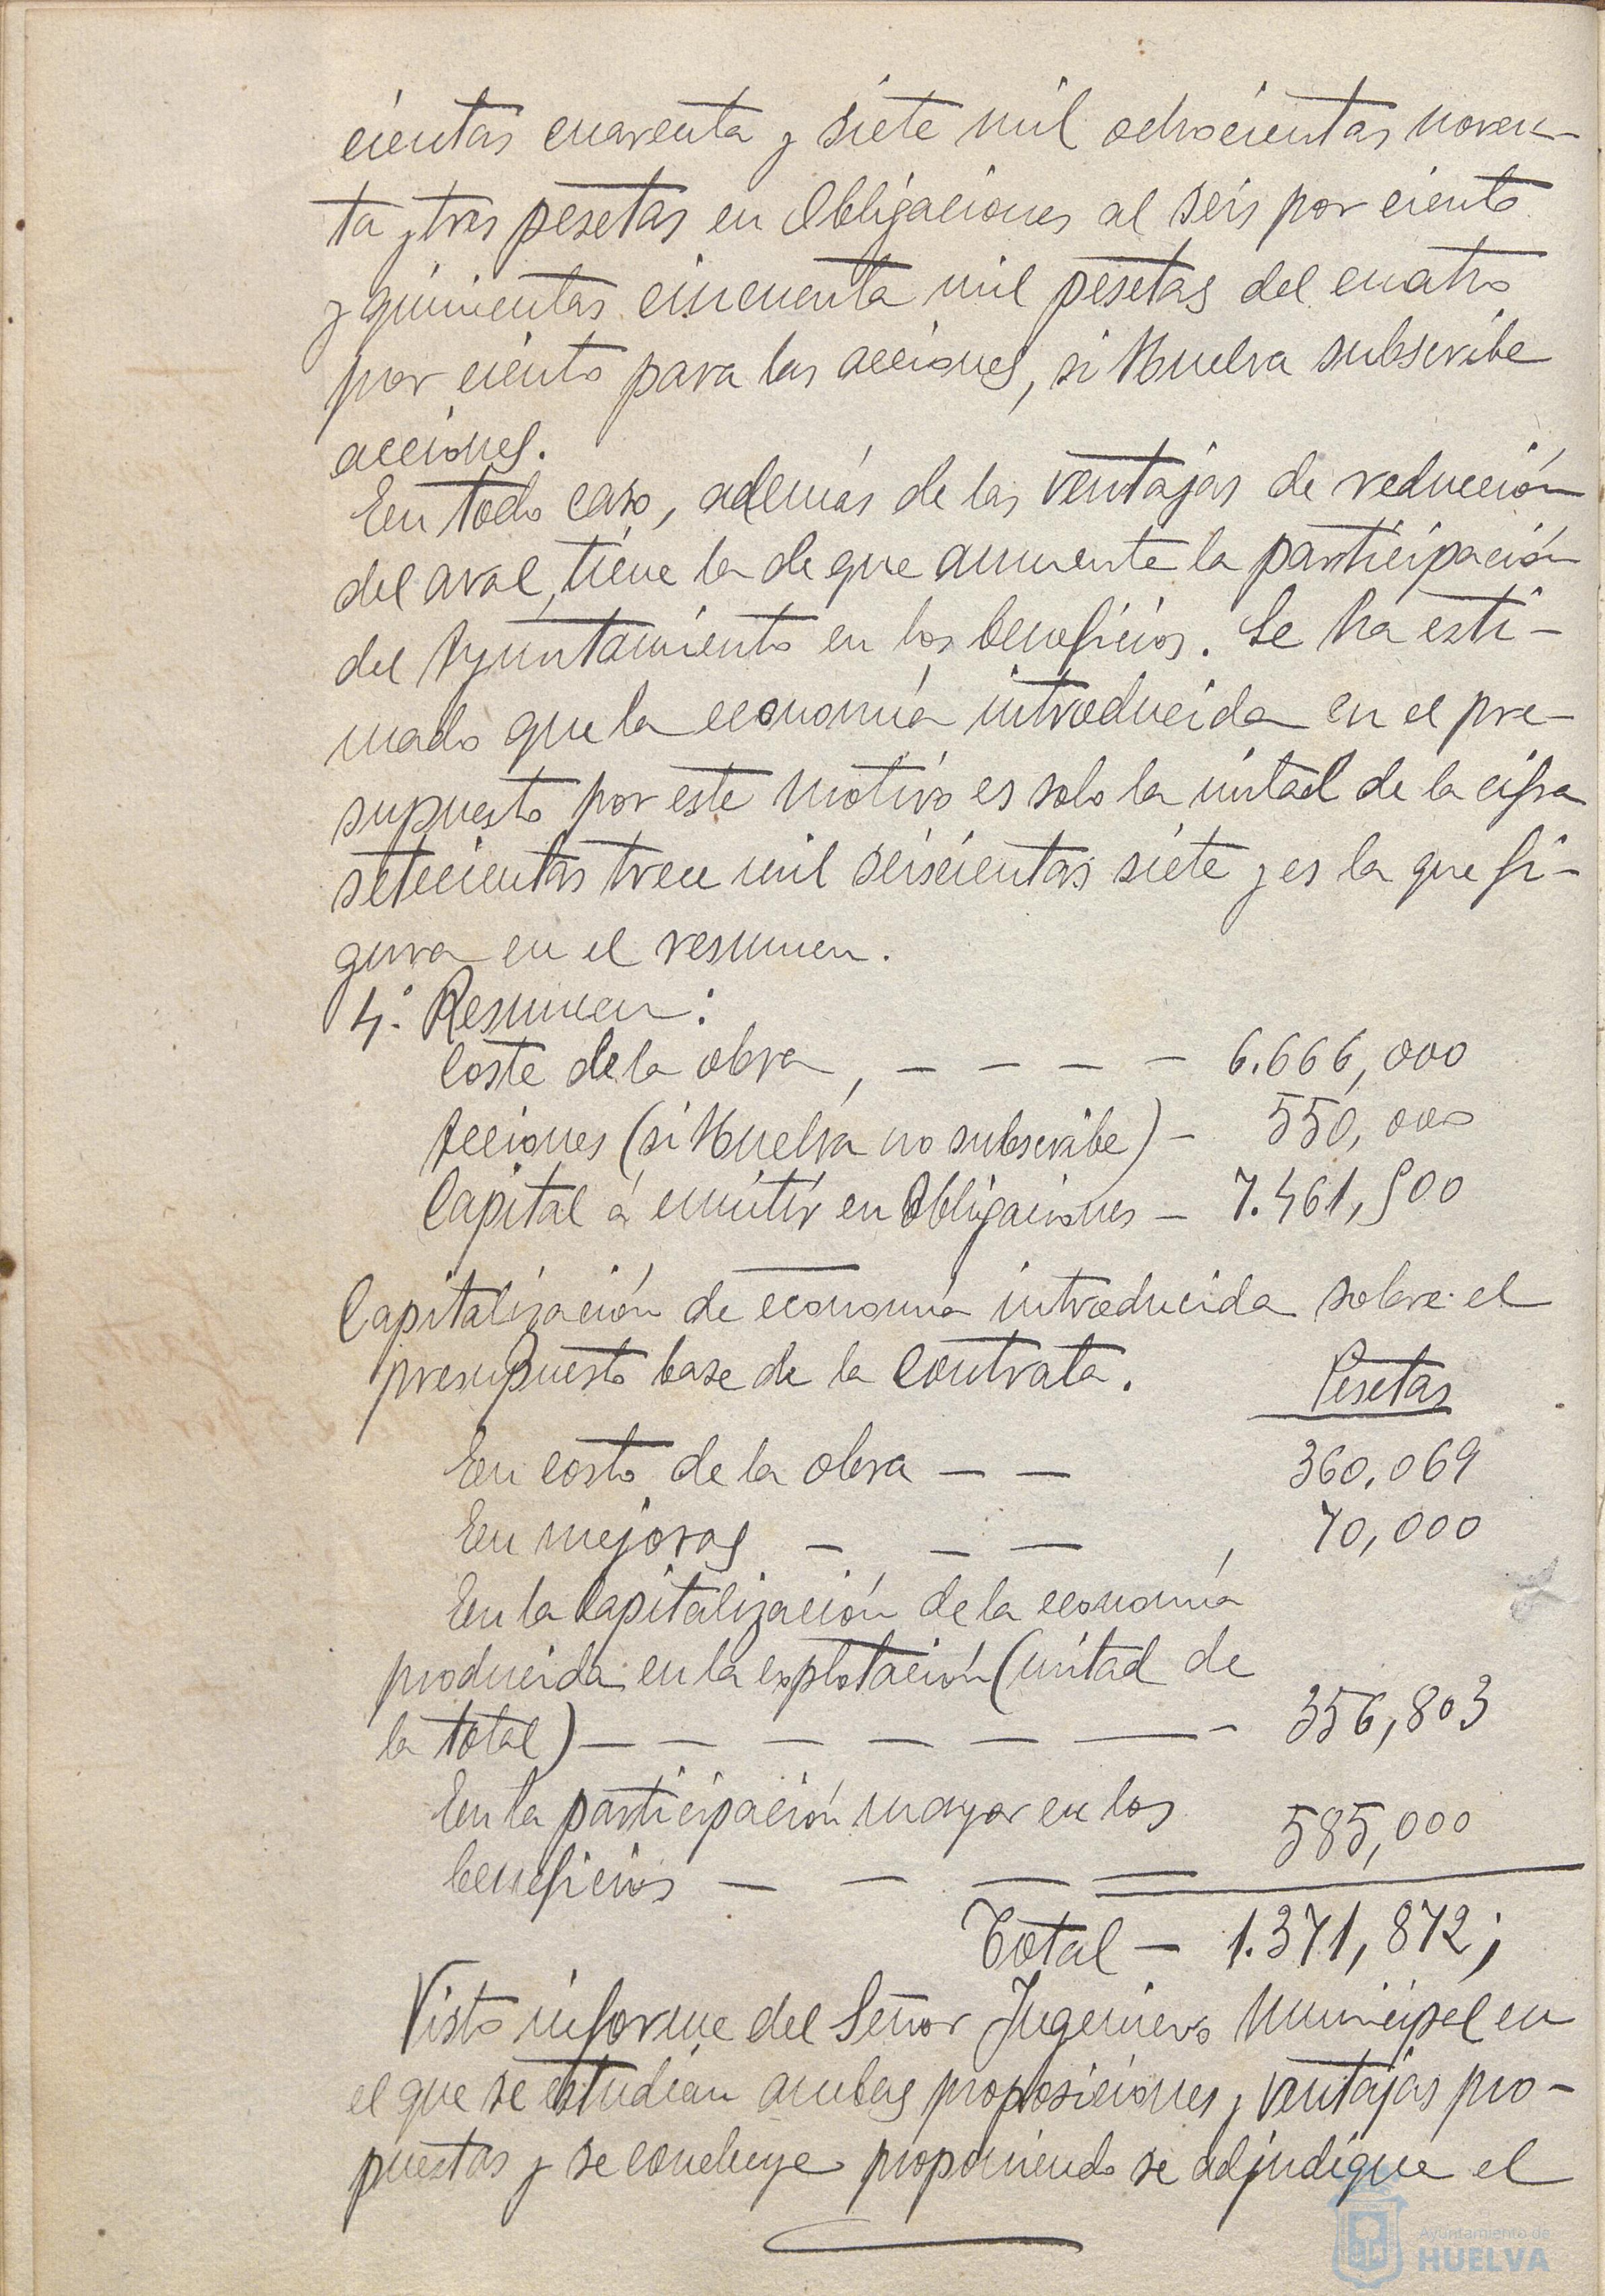 cientas cuarenta y siete mil ochocientas noven-
ta y tres pesetas en Obligaciones al seis por ciento
y quinientas cincuenta mil pesetas del cuatro
por ciento para las acciones, si Huelva subscribe
acciones.
En todo caso, además de las ventajas de reducción
del aval, tiene la de que aumente la participación
del Ayuntamiento en los beneficios. Se ha esti-
mado que la economía introducida en el pre-
supuesto por este motivo es solo la mitad de la cifra
setecientas trece mil seiscientas siete y es la que fi-
gura en el resumen.
4º. Resumen:
Coste de la obra, - - - - 6.666,000
Acciones (si Huelva no subscribe) - 550,000
Capital á emitir en Obligaciones - 7.461,500
Capitalización de economía introducida sobre el
presupuesto base de la contrata. Pesetas
En costo de la obra - - 360,069
En mejoras - - - , 70,000
En la Capitalización de la economía
producida en la explotación (mitad de
la total) - - - - - - - 356,803
En la participación mayor en los
beneficios - - - - 585,000
Total - 1.371,872;
Visto informe del Señor Ingeniero Municipal en
el que se estudian ambas proposiciones y ventajas pro-
puestas y se concluye proponiendo se adjudique el
Ayuntamiento de
HUELVA